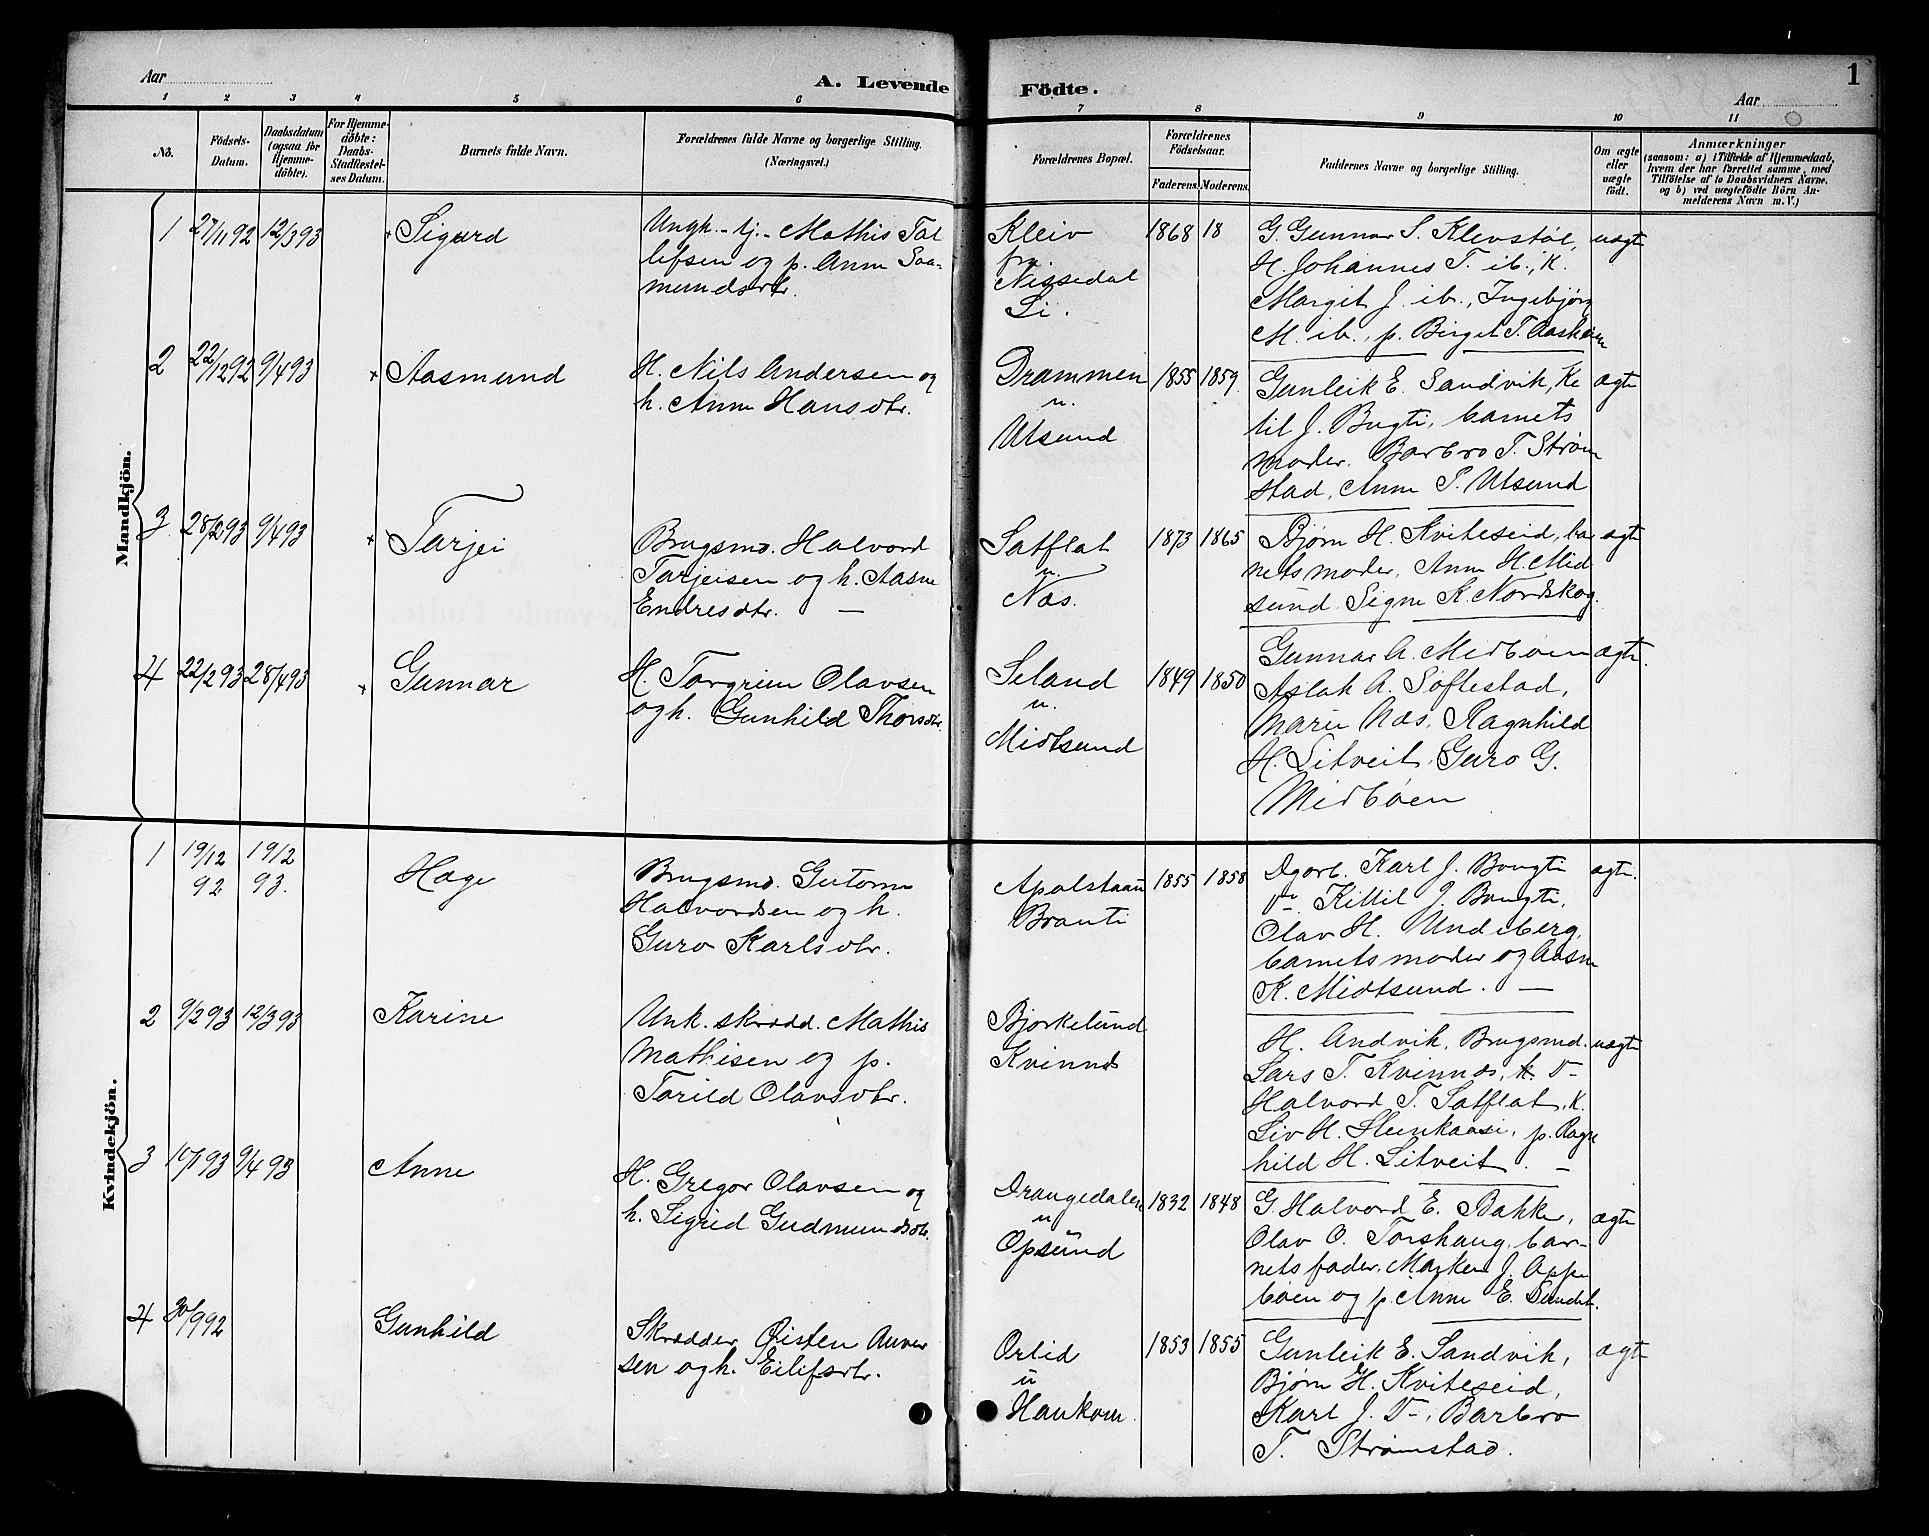 Aar
A. Levende
Födte.
Aar
1
1 2 3 4 5 6 7 8 9 10 11
No.
Födsels-
Datum.
Daabsdatum
(ogsaa for
Hjemme-
döbte).
For Hjemme-
döbte:
Daabs-
Stadfæstel-
ses Datum.
Barnets fulde Navn.
Forældrenes fulde Navne og borgerlige Stilling.
(Næringsvei.)
Forældrenes Bopæl.
Forældrenes
Födselsaar.
Faderens. Moderens.
Faddernes Navne og borgerlige Stilling.
Om ægte
eller
uægte
födt.
Anmærkninger
(saasom: a) i Tilfælde af Hjemmedaab,
hvem der har forrettet samme, med
Tilföielse af to Daabsvidners Navne.
og b) ved uægtefödte Börn An-
melderens Navn m. V.)
Mandkjön.
1 27/11 92 12/3 93
Sigurd
Ungk. tj. Mathis Tal
lefsen og p. Anne Saa-
mundsdtr.
Kleiv
fra
Nissedal
Li.
1868 18
G. Gunnar S. Klevstøl,
H. Johannes T. ib., K.
Margit J. ib., Ingebjørg
M. ib., p. Birgit T. Aasheim
uægte
2 22/12 92 9/4 93
Aasmund
H. Nils Andersen og
h. Anne Hansdtr.
Drammen
u.
Utsund
1855 1859.
Gunleik E. Sandvik, Ke
til J. Bugti, barnets
moder, Barbro T. Strøm
stad, Anne S. Utsund
ægte
3 28/2 93 9/4 93
Tarjei
Brugsmd. Halvord
Tarjeisen og h. Aasne
Endresdtr. —
Satflat
u.
Næs.
1873 1865
Bjørn H. Kviteseid, bar
nets moder, Anne H. Mid
sund Signe K. Nordskog.
ægte
4 22/2 93 28/4 93
Gunnar
H. Torgrim Olavsen
og h. Gunhild Thorsdtr.
Seland
u.
Midtsund
1849 1850
Gunnar A. Midbøen
Aslak A. Softestad,
Marie Næs, Ragnhild
H. Litveit, Guro G.
Midbøen
ægte.
Kvindekjön.
1 19/12 92 19/2 93.
Hæge
Brugsmd. Gutorm
Halvordsen og h.
Guro Karlsdtr.
Apalstaan
Branti
1855 1858
Dgarb. Karl J. Bougti
Kittil J. Bougti,
Olav H. Undeberg,
barnets moder og Aasne
K. Midtsund. —
ægte.
2 9/2 93 12/3 93
Karine
Unk. skrædd. Mathis
Mathisen og p.
Torild Olavsdtr.
Bjørkelund
Kvinnes
H. Andvik, Brugsmd.
Lars T. Kvinnes, K. D-
Halvord T. Satflat, K.
Liv H. Steinkaasi, p. Ragn
hild H. Litveit. —
uægte
3 10/1 93 9/4 93
Anne
H. Gregor Olavsen og
h. Sigrid Gudmundsdtr.
Drangedalen
u
Opsund
1832 1848
G. Halvord E. Bakken,
Olav O. Torshaug, bar-
nets fader, Marken J. Appe
bøen og p. Anne E. Sundet.
ægte
4 30/9 92
Gunhild
Skrædder Øisten Anver
sen og h. Eilifsdtr.
Orlid
u
Haukom.
1853 1855
Gunleik E. Sandvik,
Bjørn H. Kviteseid,
Karl J. D-, Barbro
T. Strømstad.
ægte